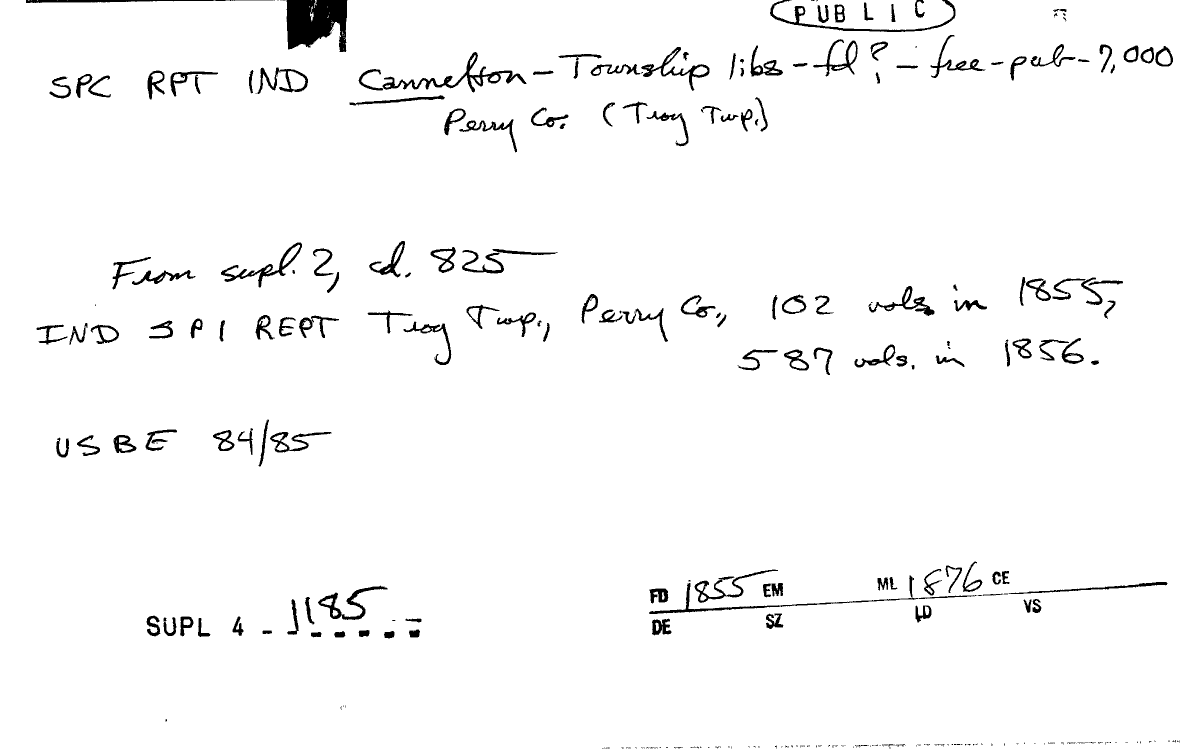 PUBLIC
SPC RPT IND Cannelton - Township libs - fd? - free - pub - 7,000
Perry Co. (Troy Twp.)
From supl. 2, cd. 825
IND SPI REPT Troy Twp., Perry Co., 102 vols in 1855,
587 vols. in 1856.
USBE 84/85
SUPL 4 - 1185
FD 1855 EM ML 1876 CE
DE SZ LD VS